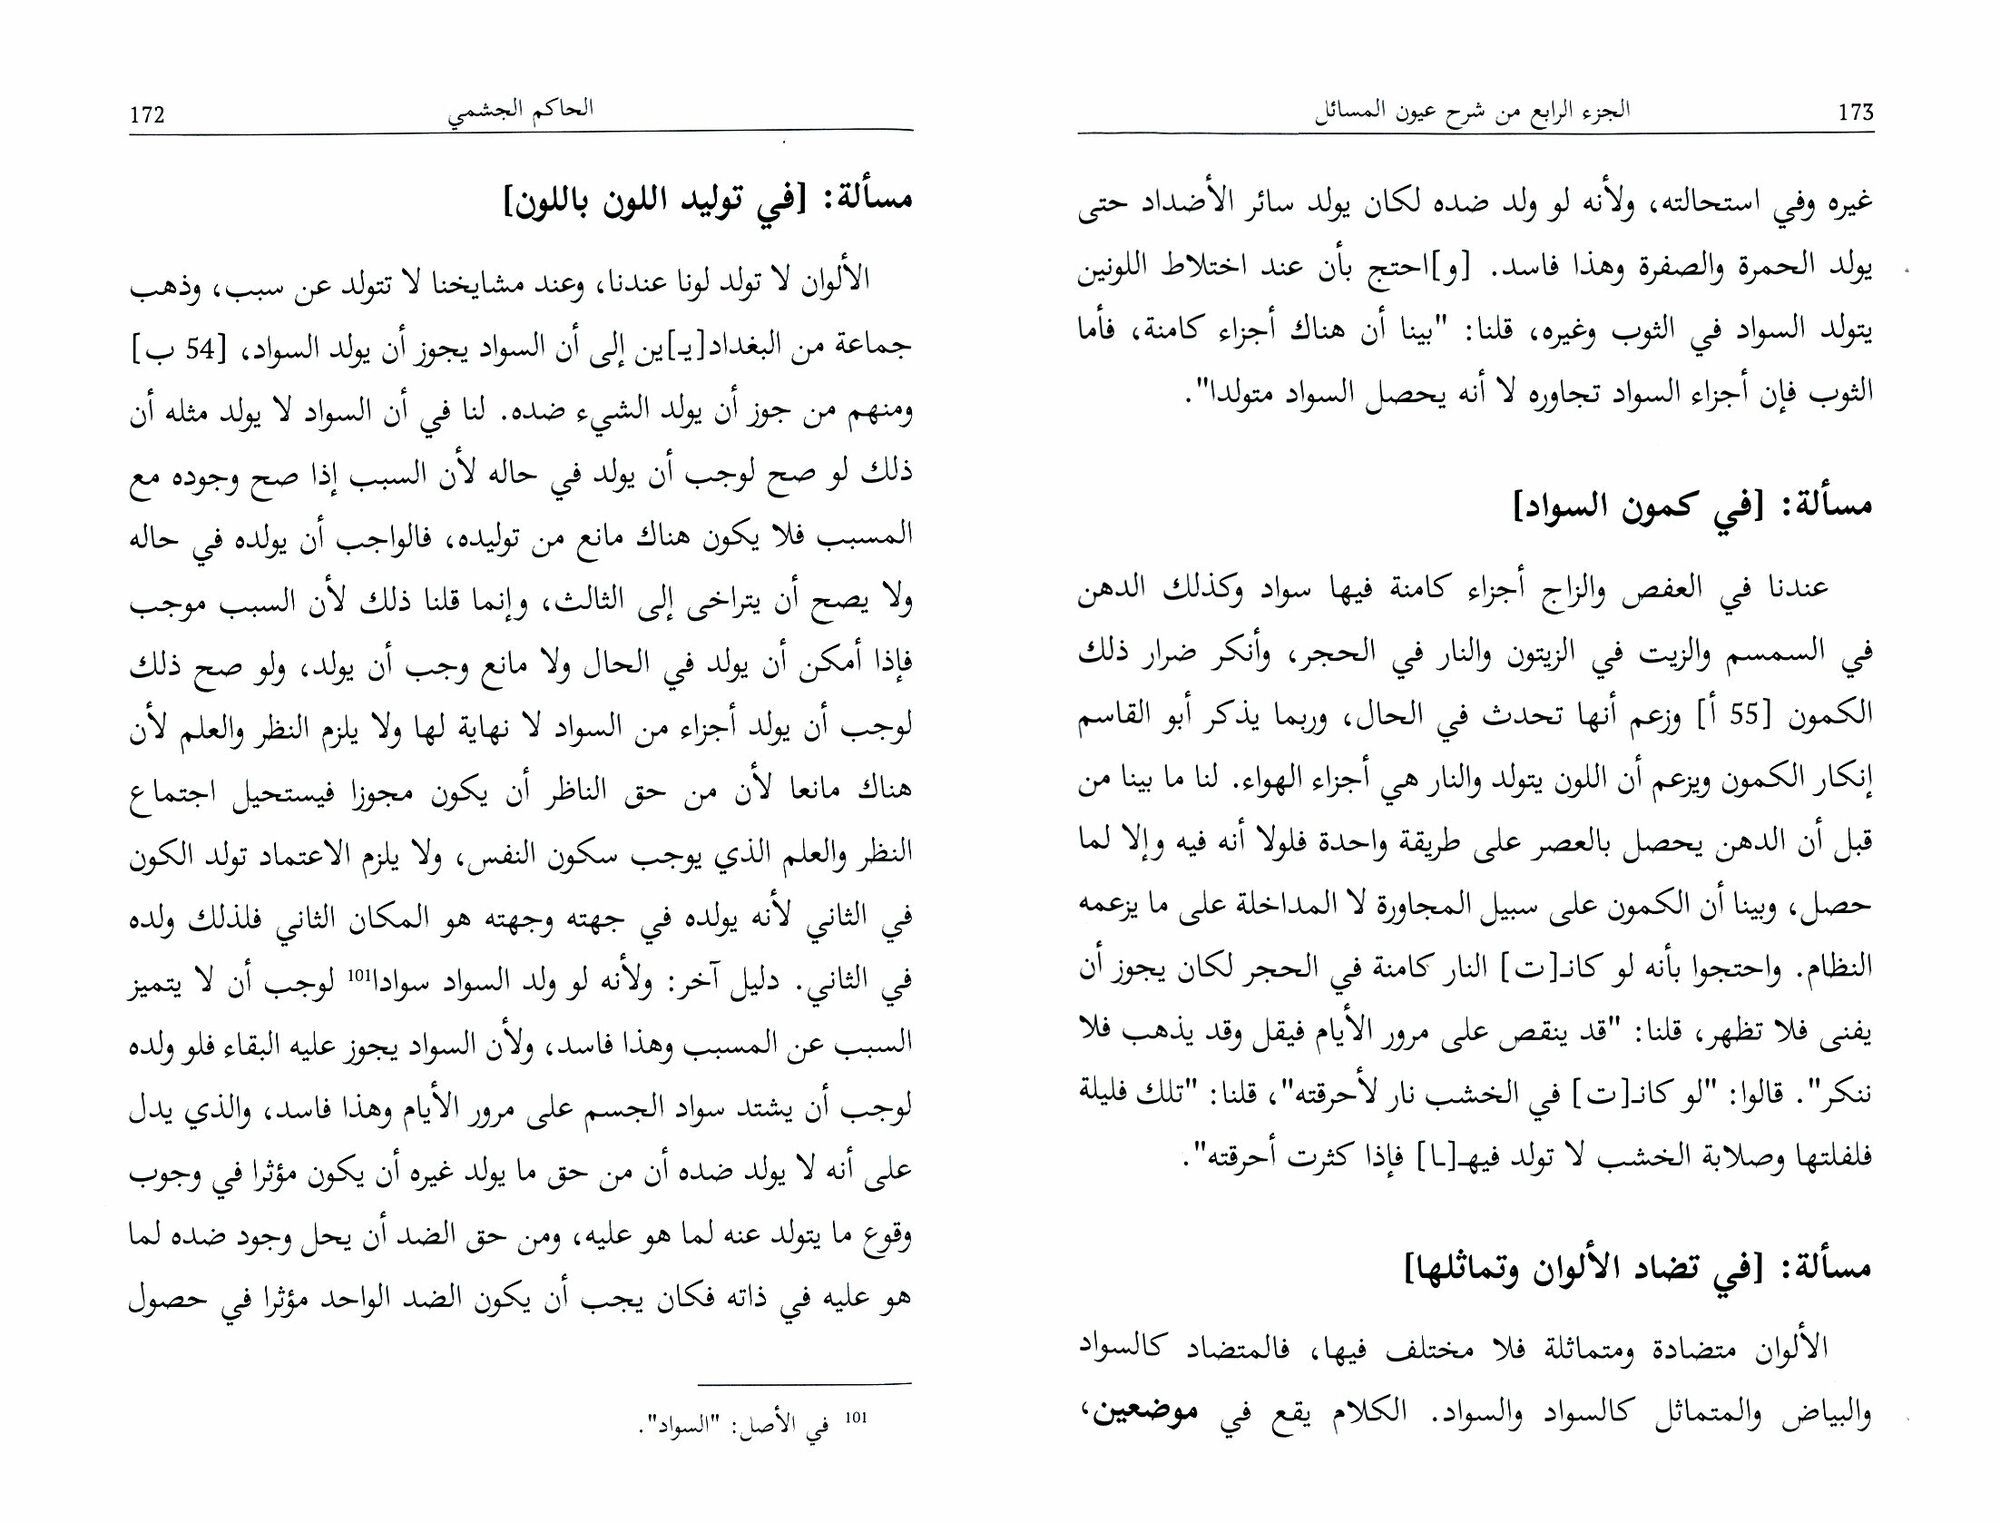 172
الحاكم الجشمي
مسألة: [في توليد اللون باللون]
الألوان لا تولد لونا عندنا، وعند مشايخنا لا تتولد عن سبب، وذهب
جماعة من البغداد[يـ]ين إلى أن السواد يجوز أن يولد السواد، [54 ب]
ومنهم من جوز أن يولد الشيء ضده. لنا في أن السواد لا يولد مثله أن
ذلك لو صح لوجب أن يولد في حاله لأن السبب إذا صح وجوده مع
المسبب فلا يكون هناك مانع من توليده، فالواجب أن يولده في حاله
ولا يصح أن يتراخى إلى الثالث، وإنما قلنا ذلك لأن السبب موجب
فإذا أمكن أن يولد في الحال ولا مانع وجب أن يولد، ولو صح ذلك
لوجب أن يولد أجزاء من السواد لا نهاية لها ولا يلزم النظر والعلم لأن
هناك مانعا لأن من حق الناظر أن يكون مجوزا فيستحيل اجتماع
النظر والعلم الذي يوجب سكون النفس، ولا يلزم الاعتماد تولد الكون
في الثاني لأنه يولده في جهته وجهته هو المكان الثاني فلذلك ولده
في الثاني. دليل آخر: ولأنه لو ولد السواد سوادا101 لوجب أن لا يتميز
السبب عن المسبب وهذا فاسد، ولأن السواد يجوز عليه البقاء فلو ولده
لوجب أن يشتد سواد الجسم على مرور الأيام وهذا فاسد، والذي يدل
على أنه لا يولد ضده أن من حق ما يولد غيره أن يكون مؤثرا في وجوب
وقوع ما يتولد عنه لما هو عليه، ومن حق الضد أن يحل وجود ضده لما
هو عليه في ذاته فكان يجب أن يكون الضد الواحد مؤثرا في حصول
101 في الأصل: "السواد".
173
الجزء الرابع من شرح عيون المسائل
غيره وفي استحالته، ولأنه لو ولد ضده لكان يولد سائر الأضداد حتى
يولد الحمرة والصفرة وهذا فاسد. [و]احتج بأن عند اختلاط اللونين
يتولد السواد في الثوب وغيره، قلنا: "بينا أن هناك أجزاء كامنة، فأما
الثوب فإن أجزاء السواد تجاوره لا أنه يحصل السواد متولدا".
مسألة: [في كمون السواد]
عندنا في العفص والزاج أجزاء كامنة فيها سواد وكذلك الدهن
في السمسم والزيت في الزيتون والنار في الحجر، وأنكر ضرار ذلك
الكمون [55 أ] وزعم أنها تحدث في الحال، وربما يذكر أبو القاسم
إنكار الكمون ويزعم أن اللون يتولد والنار هي أجزاء الهواء. لنا ما بينا من
قبل أن الدهن يحصل بالعصر على طريقة واحدة فلولا أنه فيه وإلا لما
حصل، وبينا أن الكمون على سبيل المجاورة لا المداخلة على ما يزعمه
النظام. واحتجوا بأنه لو كانـ[ت] النار كامنة في الحجر لكان يجوز أن
يفنى فلا تظهر، قلنا: "قد ينقص على مرور الأيام فيقل وقد يذهب فلا
ننكر". قالوا: "لو كانـ[ت] في الخشب نار لأحرقته"، قلنا: "تلك فليلة
فلفلتها وصلابة الخشب لا تولد فيهـ[ـا] فإذا كثرت أحرقته".
مسألة: [في تضاد الألوان وتماثلها]
الألوان متضادة ومتماثلة فلا مختلف فيها، فالمتضاد كالسواد
والبياض والمتماثل كالسواد والسواد. الكلام يقع في موضعين،